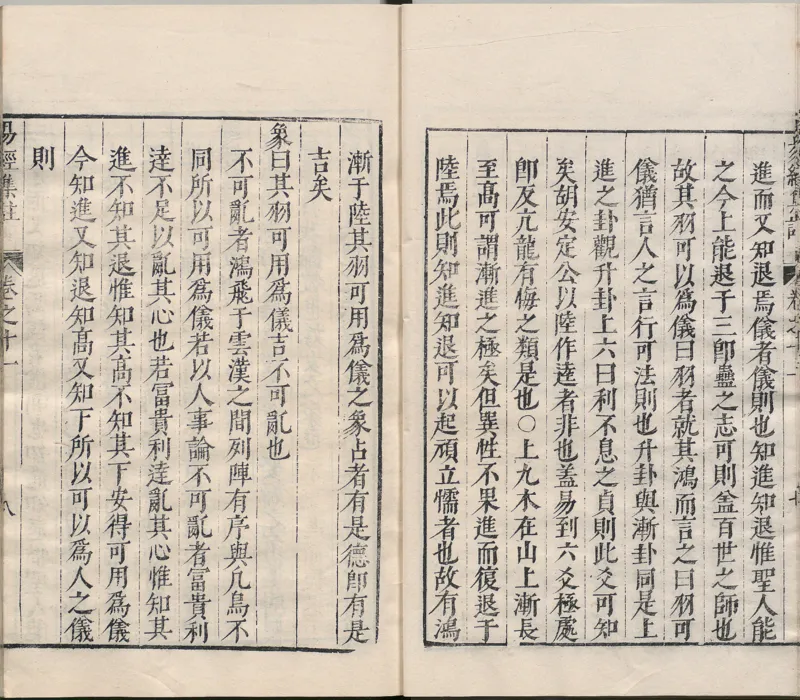 進而又知退焉儀者儀則也知進知退惟聖人能
之今上能退于三卽蠱之志可則盖百世之師也
故其羽可以爲儀曰羽者就其鴻而言之曰羽可
儀猶言人之言行可法則也升卦與漸卦同是上
進之卦觀升卦上六曰利不息之貞則此爻可知
矣胡安定公以陸作逵者非也盖易到六爻極處
卽反亢龍有悔之類是也○上九木在山上漸長
至高可謂漸進之極矣但巽性不果進而復退于
陸焉此則知進知退可以起頑立懦者也故有鴻
漸于陸其羽可用爲儀之象占者有是德卽有是
吉矣
象曰其羽可用爲儀吉不可亂也
不可亂者鴻飛于雲漢之間列陣有序與凡鳥不
同所以可用爲儀若以人事論不可亂者富貴利
達不足以亂其心也若富貴利達亂其心惟知其
進不知其退惟知其高不知其下安得可用爲儀
今知進又知退知高又知下所以可以爲人之儀
則
易經集註
卷之十一
八